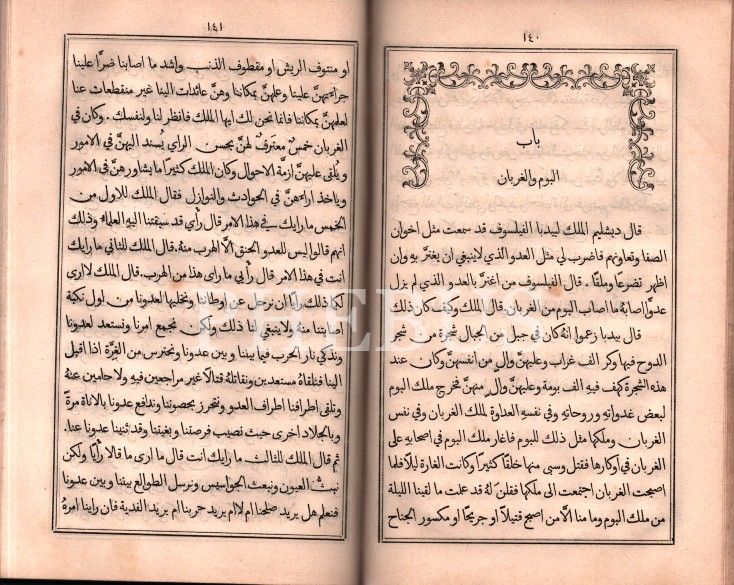 ١٤٠
باب
البوم والغربان
قال دبشليم الملك لبيدبا الفيلسوف قد سمعت مثل اخوان
الصفا وتعاونهم فاضرب لي مثل العدو الذي لا ينبغي ان يغترّ به وإن
اظهر تضرعًا وملقًا . قال الفيلسوف من اغترّ بالعدو الذي لم يزل
عدوًّا اصابهُ ما اصاب البوم من الغربان. قال الملك وكيف كان ذلك
قال بيدبا زعموا انهُ كان في جبل من الجبال شجرة من شجر
الدوح فيها وكر الف غراب وعليهنَّ والٍ من انفسهنَّ وكان عند
هذه الشجرة كهف فيهِ الف بومة وعليهنَّ والٍ منهنَّ فخرج ملك البوم
لبعض غدواتهِ وروحاتهِ وفي نفسهِ العداوة لملك الغربان وفي نفس
الغربان وملكها مثل ذلك للبوم فاغار ملك البوم في اصحابهِ على
الغربان في اوكارها فقتل وسبى منها خلقًا كثيرًا وكانت الغارة ليلًا فلما
اصبحت الغربان اجتمعت الى ملكها فقلنَ لهُ قد علمت ما لقينا الليلة
من ملك البوم وما منا الّا من اصبح قتيلًا او جريحًا او مكسور الجناح
١٤١
او منتوف الريش او مقطوف الذنب واشد ما اصابنا ضرًّا علينا
جراءتهنَّ علينا وعلمهنَّ بمكاننا وهنَّ عائدات الينا غير منقطعات عنا
لعلمهنَّ بمكاننا فانما نحن لك ايها الملك فانظر لنا ولنفسك . وكان في
الغربان خمسٌ معترفٌ لهنَّ بحسن الراي يُسند اليهنَّ في الامور
ويُلقى عليهنَّ ازمَّة الاحوال وكان الملك كثيرًا ما يشاورهنَّ في الامور
وياخذ اراءهنَّ في الحوادث والنوازل فقال الملك للاول من
الخمس ما رايك في هذا الامر قال رأي قد سبقتنا اليهِ العلماء وذلك
انهم قالوا ليس للعدو الحنق الّا الهرب منهُ. قال الملك للثاني ما رايك
انت في هذا الامر قال رأيي ما راى هذا من الهرب. قال الملك لا ارى
لكما ذلك رأيًا ان نرحل عن اوطاننا ونخليها لعدونا من اول نكبة
اصابتنا منهُ ولا ينبغي لنا ذلك ولكن نجمع امرنا ونستعد لعدونا
ونذكي نار الحرب فيما بيننا وبين عدونا ونحترس من الغِرَّة اذا اقبل
الينا فنلقاهُ مستعدين ونقاتلهُ قتالًا غير مراجعين فيهِ ولا حامين عنهُ
وتلقى اطرافنا اطراف العدو ونتحرز بحصوننا وندافع عدونا بالاناة مرةً
وبالجلاد اخرى حيث نصيب فرصتنا وبغيتنا وقد ثنينا عدونا عنا.
ثم قال الملك للثالث ما رايك انت قال ما ارى ما قالا رأيًا ولكن
نبثّ العيون ونبعث الجواسيس ونرسل الطوالع بيننا وبين عدونا
فنعلم هل يريد صلحنا ام لا ام يريد حربنا ام يريد الفدية فان راينا امرهُ